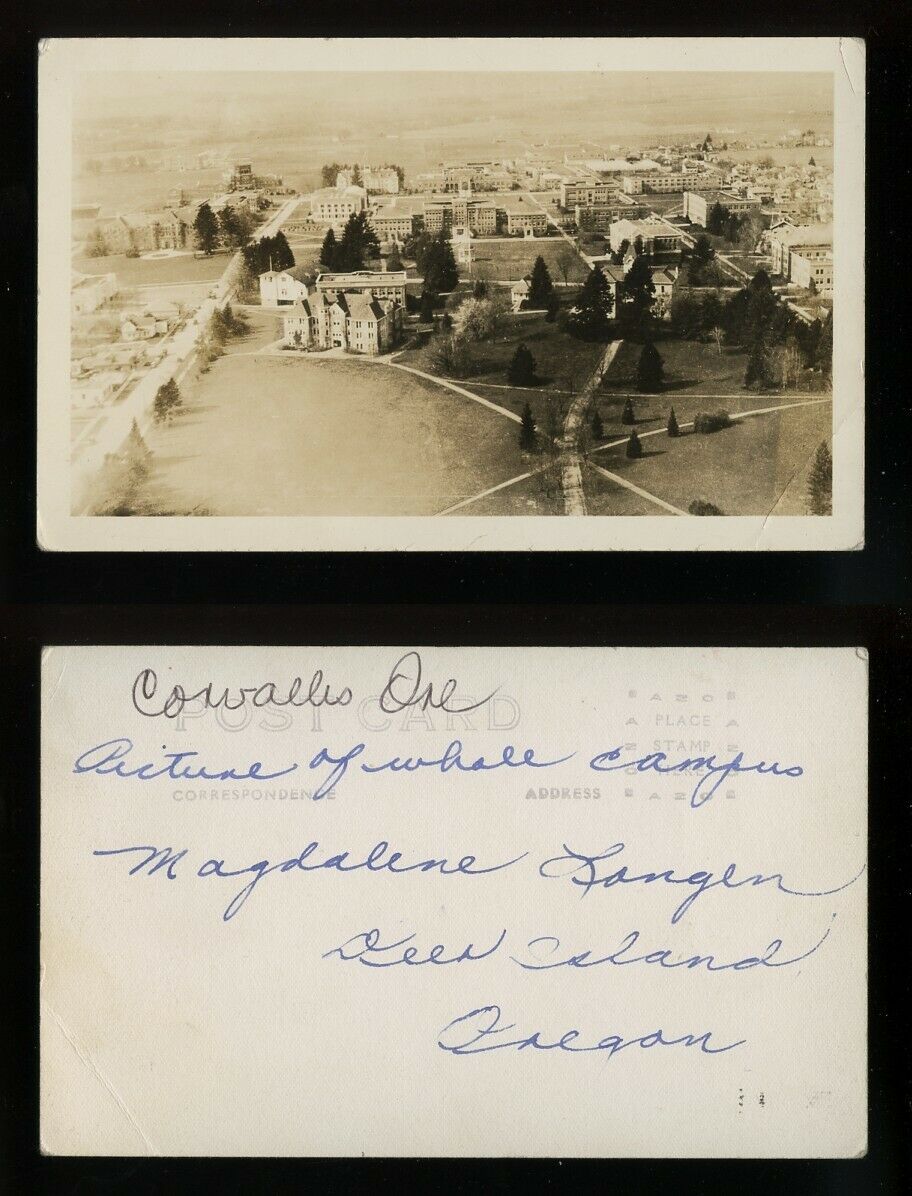 Corvallis Ore
POST CARD
AZO
PLACE
STAMP
HERE
AZO
Picture of whole campus
CORRESPONDENCE
ADDRESS
Magdalene Longen
Deer Island
Oregon